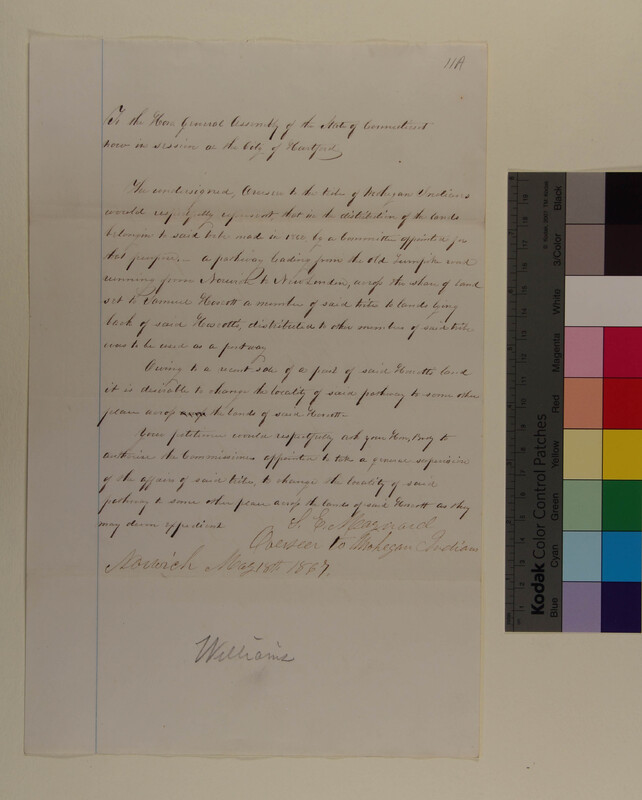 11A
To the Hon. General Assembly of the State of Connecticut
now in session at the City of Hartford
The undersigned, Overseer to the tribe of Mohegan Indians
would respectfully represent that in the distribution of the lands
belonging to said tribe made in by a Committee appointed for
that purpose, — a pathway leading from the Old Turnpike road
running from Norwich to New London, across the share of land
set to Samuel a member of said tribe to lands lying
back of said distributed to other members of said tribe
was to be used as a pathway
Owing to a recent sale of a part of said land
it is desirable to change the locality of said pathway to some other
place across the lands of said
Your petitioner would respectfully ask your Hon. Body to
authorise the Commissioners appointed to take a general supervision
of the affairs of said tribe, to change the locality of said
pathway to some other place across the lands of said as they
may deem expedient
S. E. Maynard
Overseer to Mohegan Indians
Norwich May 18th 1867.
Williams
Kodak Color Control Patches
Blue
Cyan
Green
Yellow
Red
Magenta
White
3/Color
Black